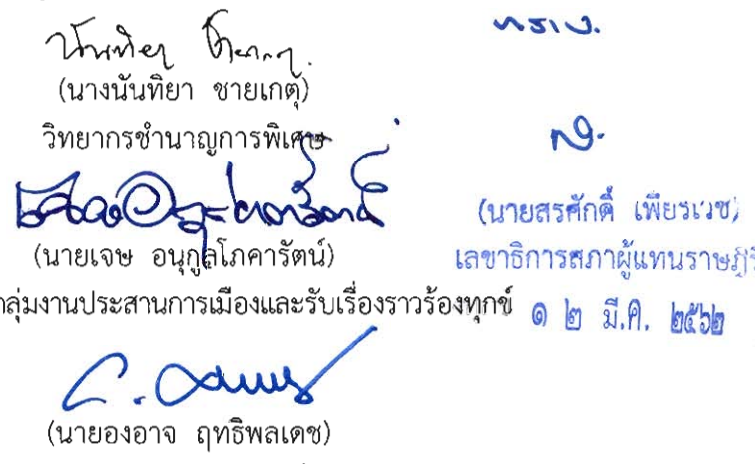 (นางนันทิยา ชายเกตุ)
วิทยากรชำนาญการพิเศษ
(นายเจษ อนุกูลโภคารัตน์)
กลุ่มงานประสานการเมืองและรับเรื่องราวร้องทุกข์
(นายองอาจ ฤทธิพลเดช)
ทราบ
(นายสรศักดิ์ เพียรเวช)
เลขาธิการสภาผู้แทนราษฎร
๑ ๒ มี.ค. ๒๕๖๒